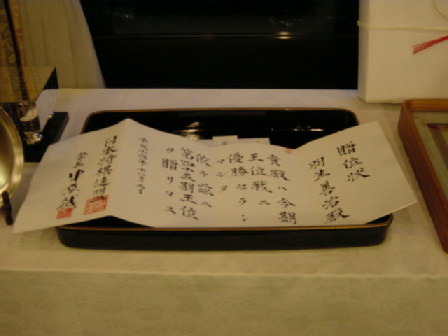 贈位状
羽生善治殿
貴殿ハ今期
王位戦ニ
優勝セラレ
マシタ
依テ茲ニ
第四十五期王位
ヲ贈リマス
日本将棋連盟
会長 中原誠